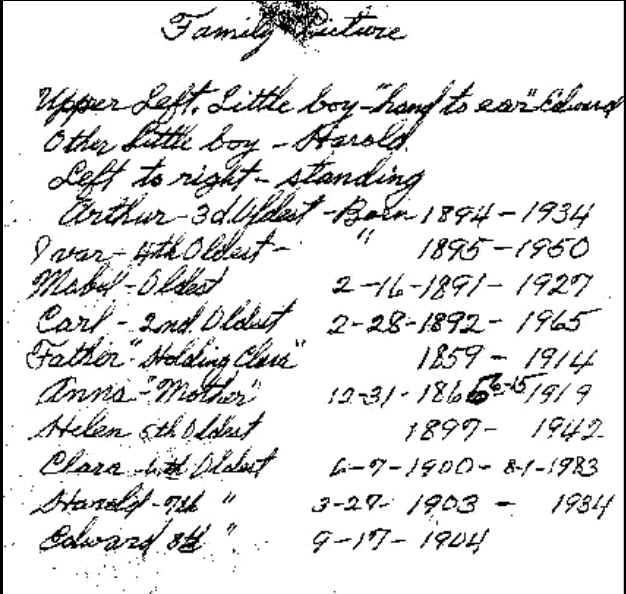 Family Picture
Upper Left. Little boy - "hand to ear" Edward
Other Little boy - Harold
Left to right - standing
Arthur - 3d Oldest - Born 1894 - 1934
Ivar - 4th Oldest - " 1895 - 1950
Mabel - Oldest 2-16-1891 - 1927
Carl - 2nd Oldest 2-28-1892 - 1965
Father "Holding Clara" 1859 - 1914
Anna - "Mother" 12-31-1865 6-15 1919
Helen 5th Oldest 1897 - 1942
Clara - 6th Oldest 6-7-1900 - 8-1-1983
Harold - 7th " 3-27-1903 - 1934
Edward 8th " 9-17-1904